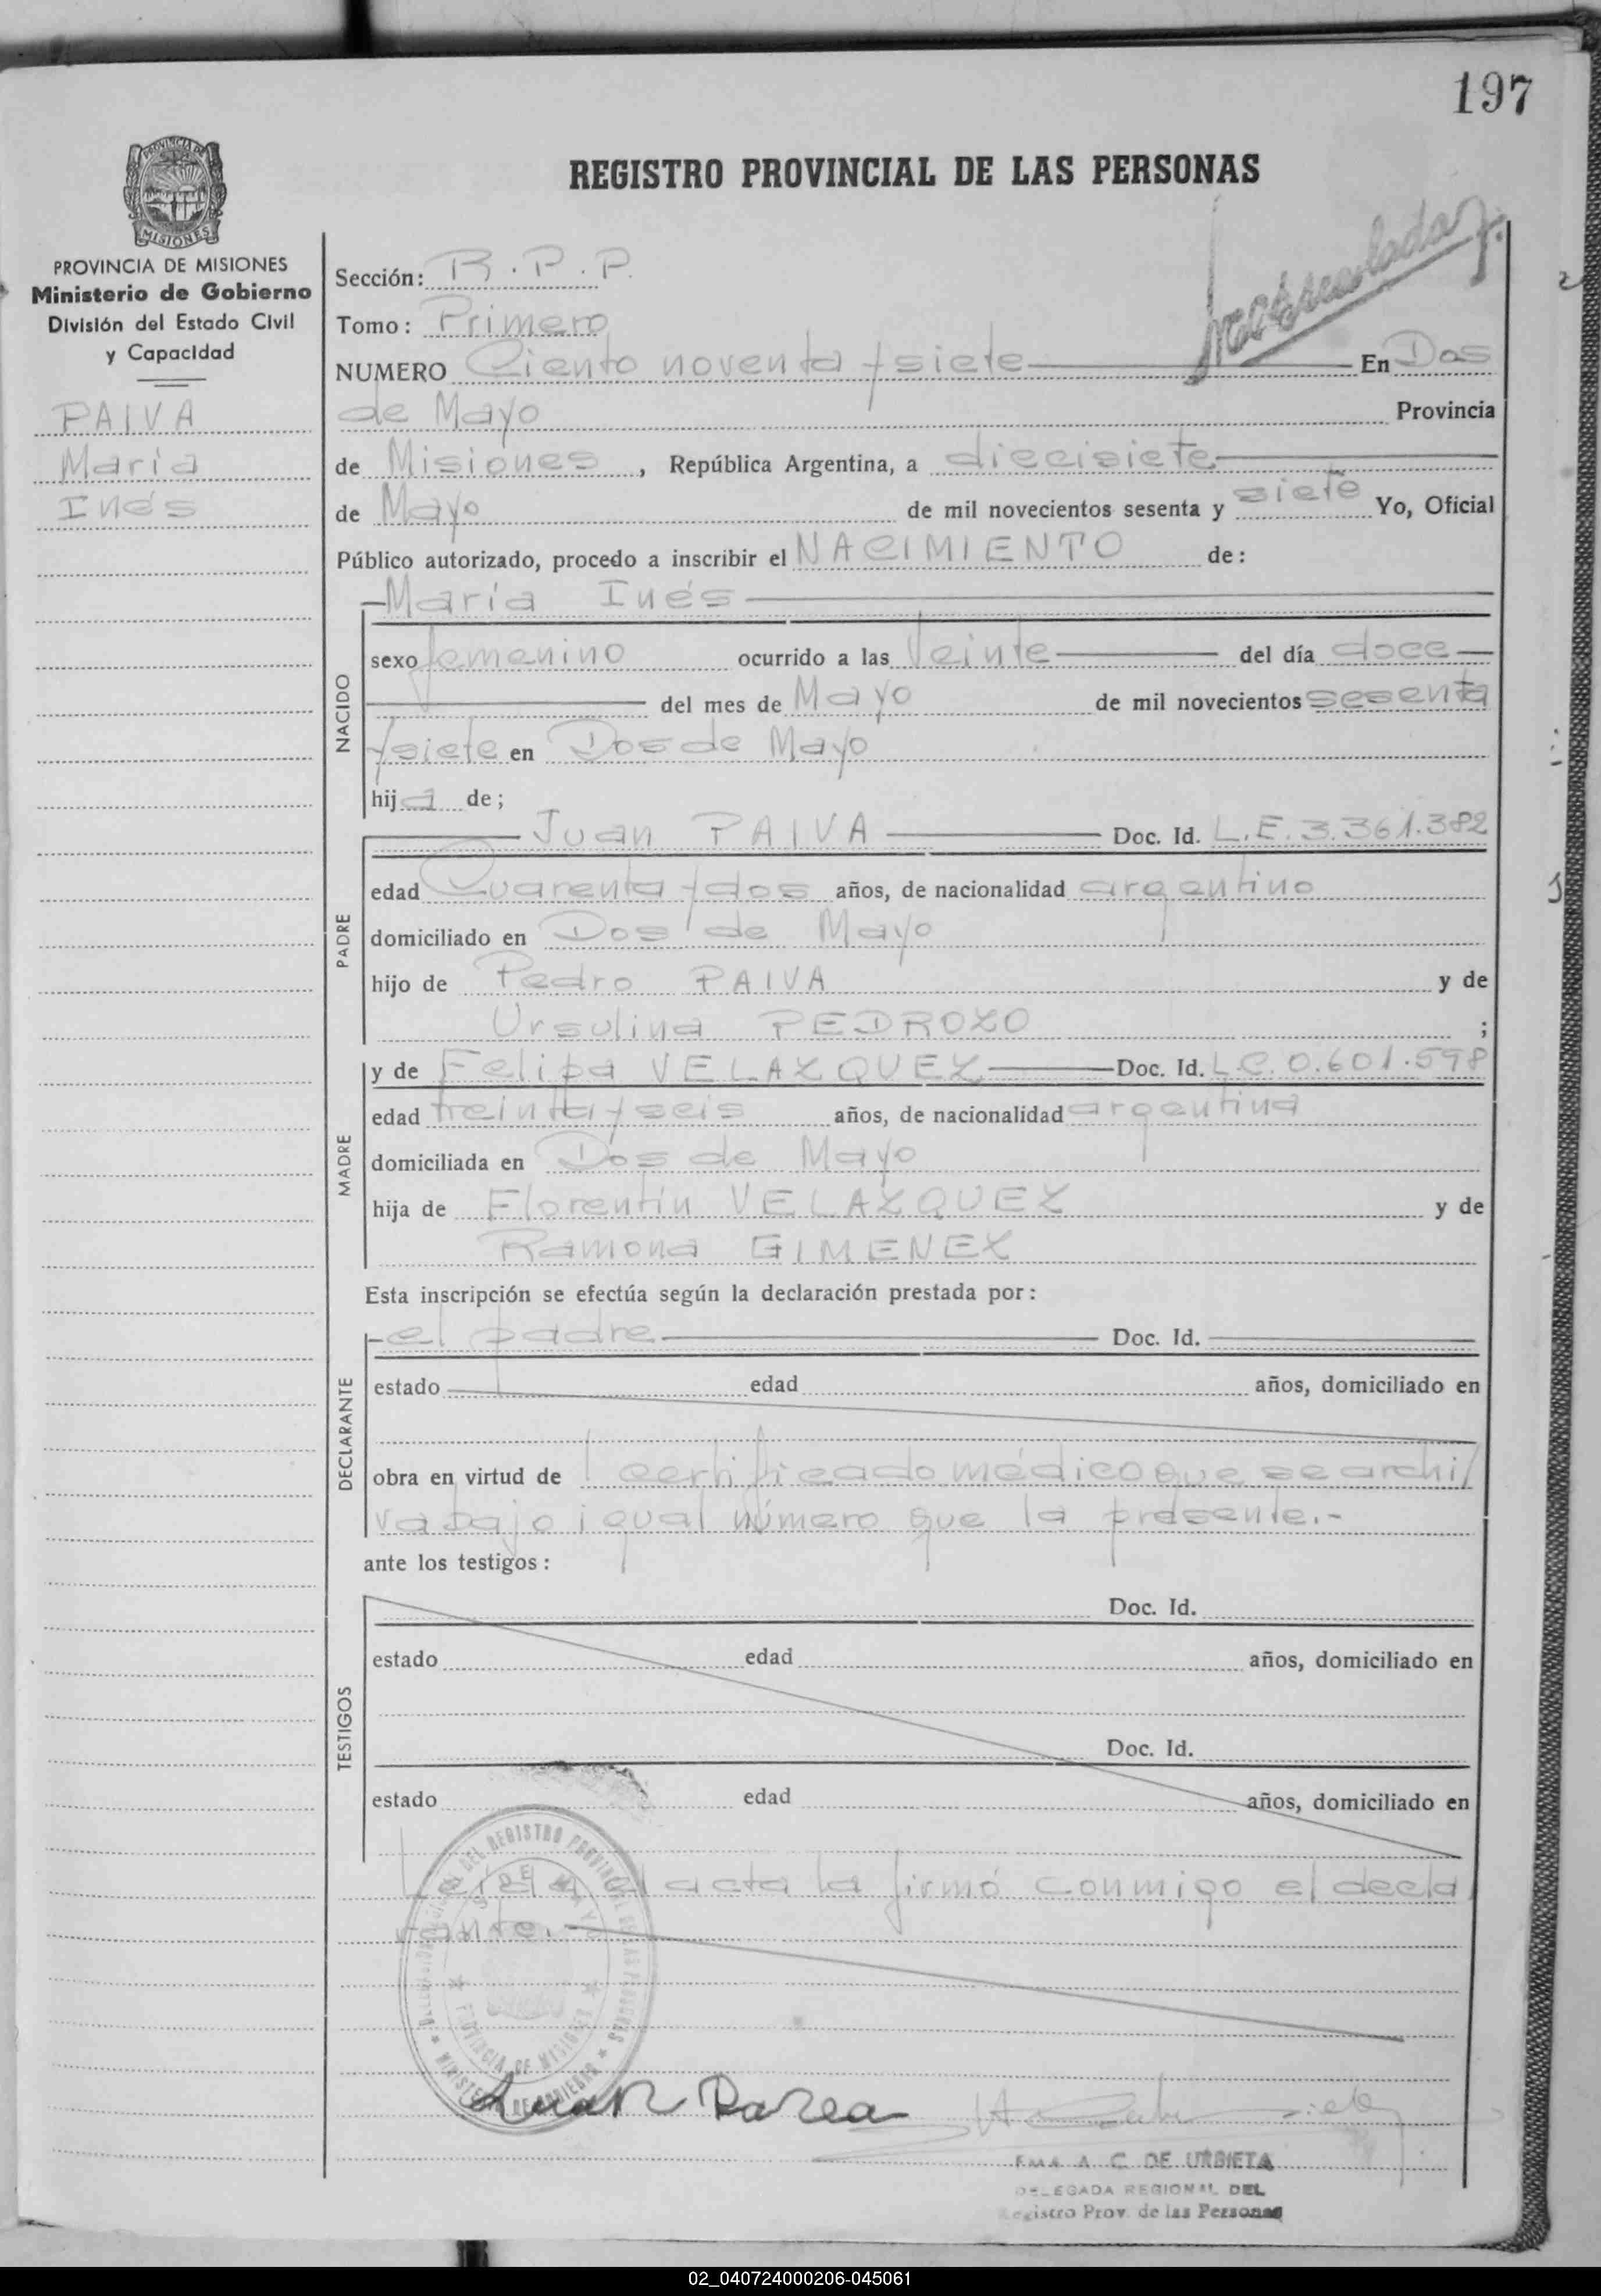 197
REGISTRO PROVINCIAL DE LAS PERSONAS
PROVINCIA DE
MISIONES
PROVINCIA DE MISIONES
Ministerio de Gobierno
División del Estado Civil
y Capacidad
PAIVA
María
Inés
Sección: R.P.P.
Tomo: Primero
NUMERO Ciento noventa y siete En Dos
de Mayo Provincia
de Misiones, República Argentina, a diecisiete
de Mayo de mil novecientos sesenta y siete Yo, Oficial
Público autorizado, procedo a inscribir el NACIMIENTO de:
María Inés
NACIDO
sexo femenino ocurrido a las Veinte del día doce
del mes de Mayo de mil novecientos sesenta
y siete en Dos de Mayo
hija de;
PADRE
Juan PAIVA Doc. Id. L.E. 3.361.382
edad Cuarenta y dos años, de nacionalidad argentino
domiciliado en Dos de Mayo
hijo de Pedro PAIVA y de
Ursulina PEDROZO ;
MADRE
y de Felipa VELAZQUEZ Doc. Id. L.C. 0.601.598
edad treinta y seis años, de nacionalidad argentina
domiciliada en Dos de Mayo
hija de Florentín VELAZQUEZ y de
Ramona GIMENEZ
Esta inscripción se efectúa según la declaración prestada por:
DECLARANTE
el padre Doc. Id.
estado edad años, domiciliado en
obra en virtud de l certificado médico que se archi/
va bajo igual número que la presente.-
ante los testigos:
TESTIGOS
Doc. Id.
estado edad años, domiciliado en
Doc. Id.
estado edad años, domiciliado en
Leída el acta la firmó conmigo el decla
rante.
DEL REGISTRO PROVINCIAL DE LAS PERSONAS
MINISTERIO DE GOBIERNO
PROVINCIA DE MISIONES
Juan
A. C. DE URBIETA
DELEGADA REGIONAL DEL
Registro Prov. de las Personas
02_040724000206-045061